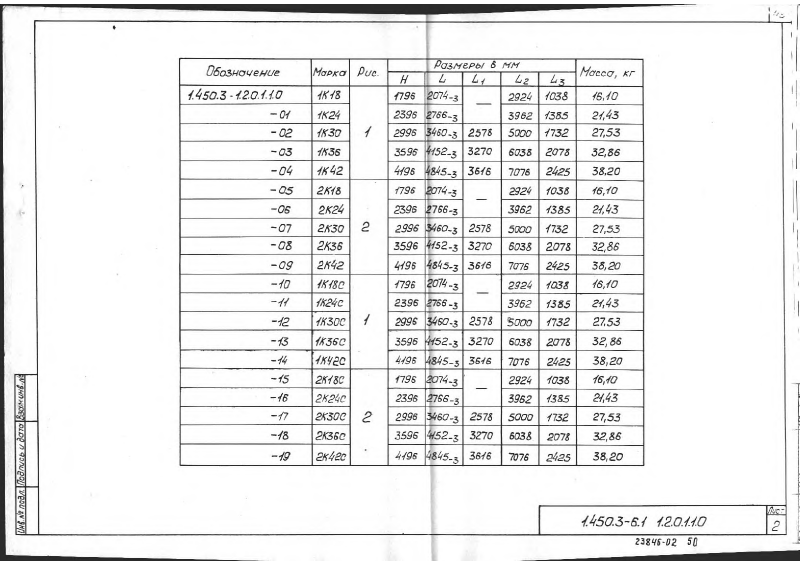 Обозначение Марка Рис. Размеры в мм Масса, кг
H L L1 L2 L3
1.450.3-1.2.0.1.1.0 1К18 1 1796 2074-3 — 2924 1038 16,10
-01 1К24 2396 2766-3 3962 1385 21,43
-02 1К30 2996 3460-3 2578 5000 1732 27,53
-03 1К36 3596 4152-3 3270 6038 2078 32,86
-04 1К42 4196 4845-3 3616 7076 2425 38,20
-05 2К18 2 1796 2074-3 — 2924 1038 16,10
-06 2К24 2396 2766-3 3962 1385 21,43
-07 2К30 2996 3460-3 2578 5000 1732 27,53
-08 2К36 3596 4152-3 3270 6038 2078 32,86
-09 2К42 4196 4845-3 3616 7076 2425 38,20
-10 1К18С 1 1796 2074-3 — 2924 1038 16,10
-11 1К24С 2396 2766-3 3962 1385 21,43
-12 1К30С 2996 3460-3 2578 5000 1732 27,53
-13 1К36С 3596 4152-3 3270 6038 2078 32,86
-14 1К42С 4196 4845-3 3616 7076 2425 38,20
-15 2К18С 2 1796 2074-3 — 2924 1038 16,10
-16 2К24С 2396 2766-3 3962 1385 21,43
-17 2К30С 2996 3460-3 2578 5000 1732 27,53
-18 2К36С 3596 4152-3 3270 6038 2078 32,86
-19 2К42С 4196 4845-3 3616 7076 2425 38,20
Инв.№ подл. Подпись и дата Взам.инв.№
1.450.3-6.1 1.2.0.1.1.0
Лист
2
23846-02 50